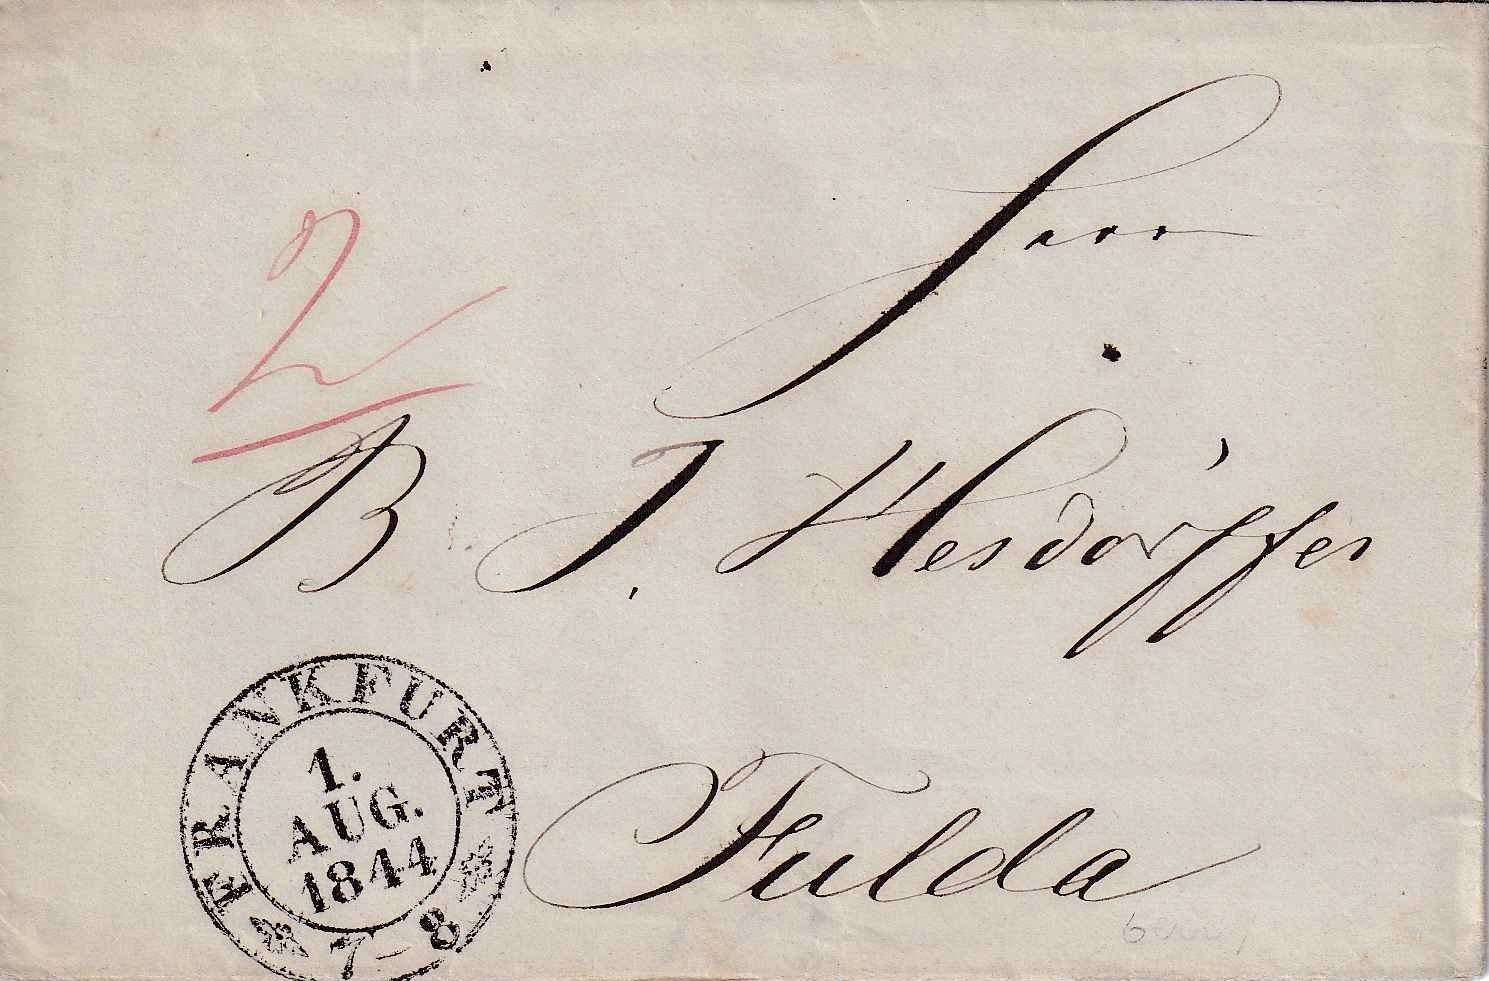 Herrn
2
B. J. Hesdörffer
Fulda
FRANKFURT
1.
AUG.
1844
7-8